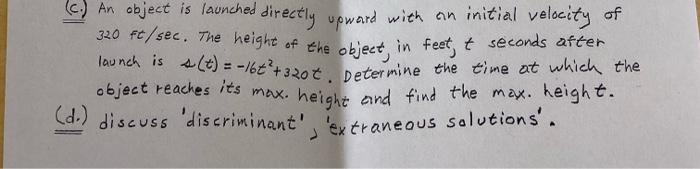 (c.) An object is launched directly upward with an initial velocity of
320 ft/sec. The height of the object, in feet, t seconds after
launch is s(t) = -16t²+320t. Determine the time at which the
object reaches its max. height and find the max. height.
(d.) discuss 'discriminant', 'extraneous solutions'.